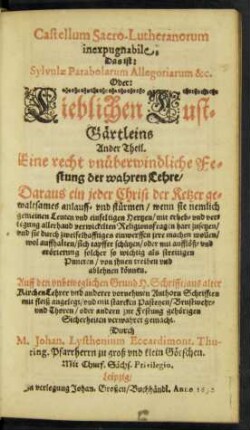 Castellum Sacro-Lutheranorum
inexpugnabile,
Das ist:
Sylvulæ Parabolarum Allegoriarum &c.
Oder:
Lieblichen Lust-
Gärtleins
Ander Theil.
Eine recht vnüberwindliche Ve-
stung der wahren Lehre/
Daraus ein jeder Christ der Ketzer ge-
waltsames anlauff- vnd stürmen / wenn sie nemlich
gemeinen Leuten vnd einfeltigen Hertzen / mit
legung allerhand verwickelten Religionsfragen hart zusetzen/
vnd sie durch zweiffelhafftiges einwerffen jrre machen wollen/
wol auffhalten / sich tapffer schützen / oder mit aufflöß- vnd
erörterung solcher so wichtig als streitigen
Puncten / von jhnen treiben vnd
ablehnen können.
Auß den vnbeweglichen Grund H. Schrifft / aus alter
Kirchen Lehrer vnd anderer vornehmen Authorn Schrifften
mit fleiß angelegt / vnd mit starcken Pasteyen / Brustwehr-
vnd Thoren / oder andern zur Festung gehörigen
Sicherheiten verwahret gemacht.
Durch
M. Johan. Lysthenium Eccardimont. Thu-
ring. Pfarrherrn zu groß vnd klein Görschen.
Mit Churf. Sächs. Privilegio.
Leipzig/
in verlegung Johan. Großen / Buchhändl. Anno